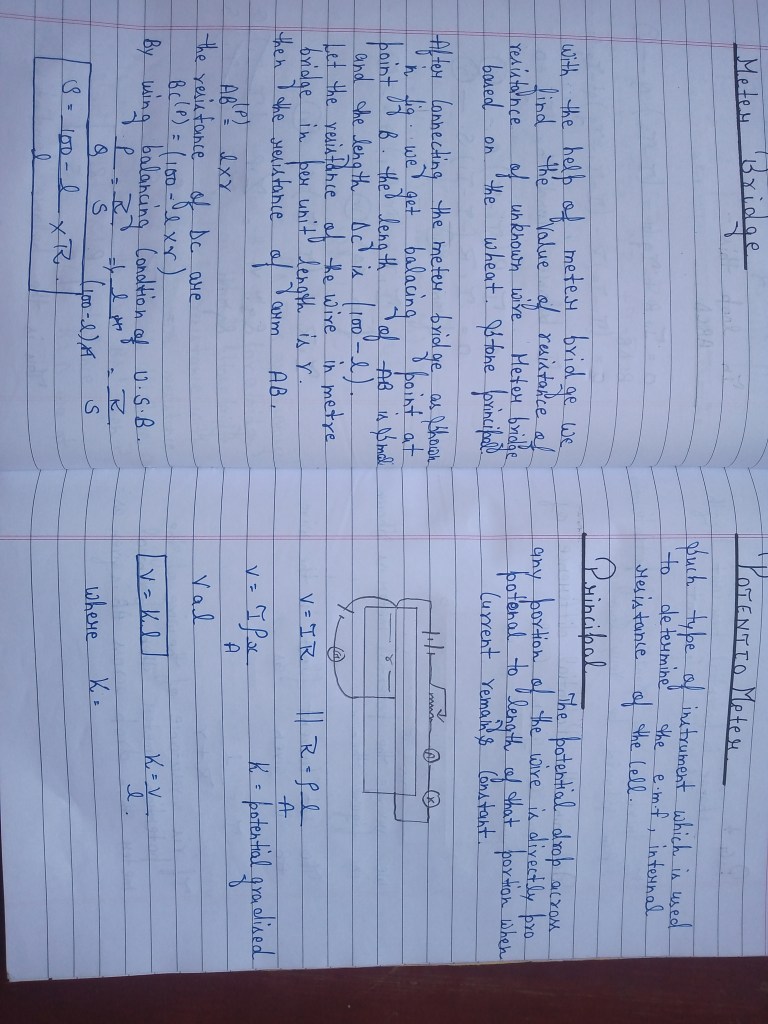 Meter Bridge
with the help of meter bridge we
find the value of resistance of
resistance of unknown wire Meter bridge
based on the wheat. Stone principal
After connecting the meter bridge as shown
n fig. we get balacing point at
point B. the length of AB is
and the length Dc is (100 - l).
Let the resistance of the wire in metre
bridge in per unit length is r.
then the resistance of arm AB.
AB(P) = l x r
the resistance of Dc are
BC(P) = (100 - l x r)
By using balancing Condtion of W.S.B.
P/Q = R/S => l r/(100 - l) r = R/S
S = 100 - l/l x R
POTENTIO Meter
Such type of instrument which is used
to determine the e.m.f, internal
resistance of the Cell.
Principal
The potential drop across
any portion of the wire is directly pro
potenal to length of that portion when
Current remains Constant.
V = IR || R = ρ l/A
V = Iρx/A K = potential gradised
V α l
V = Kl K = V/l.
where K =